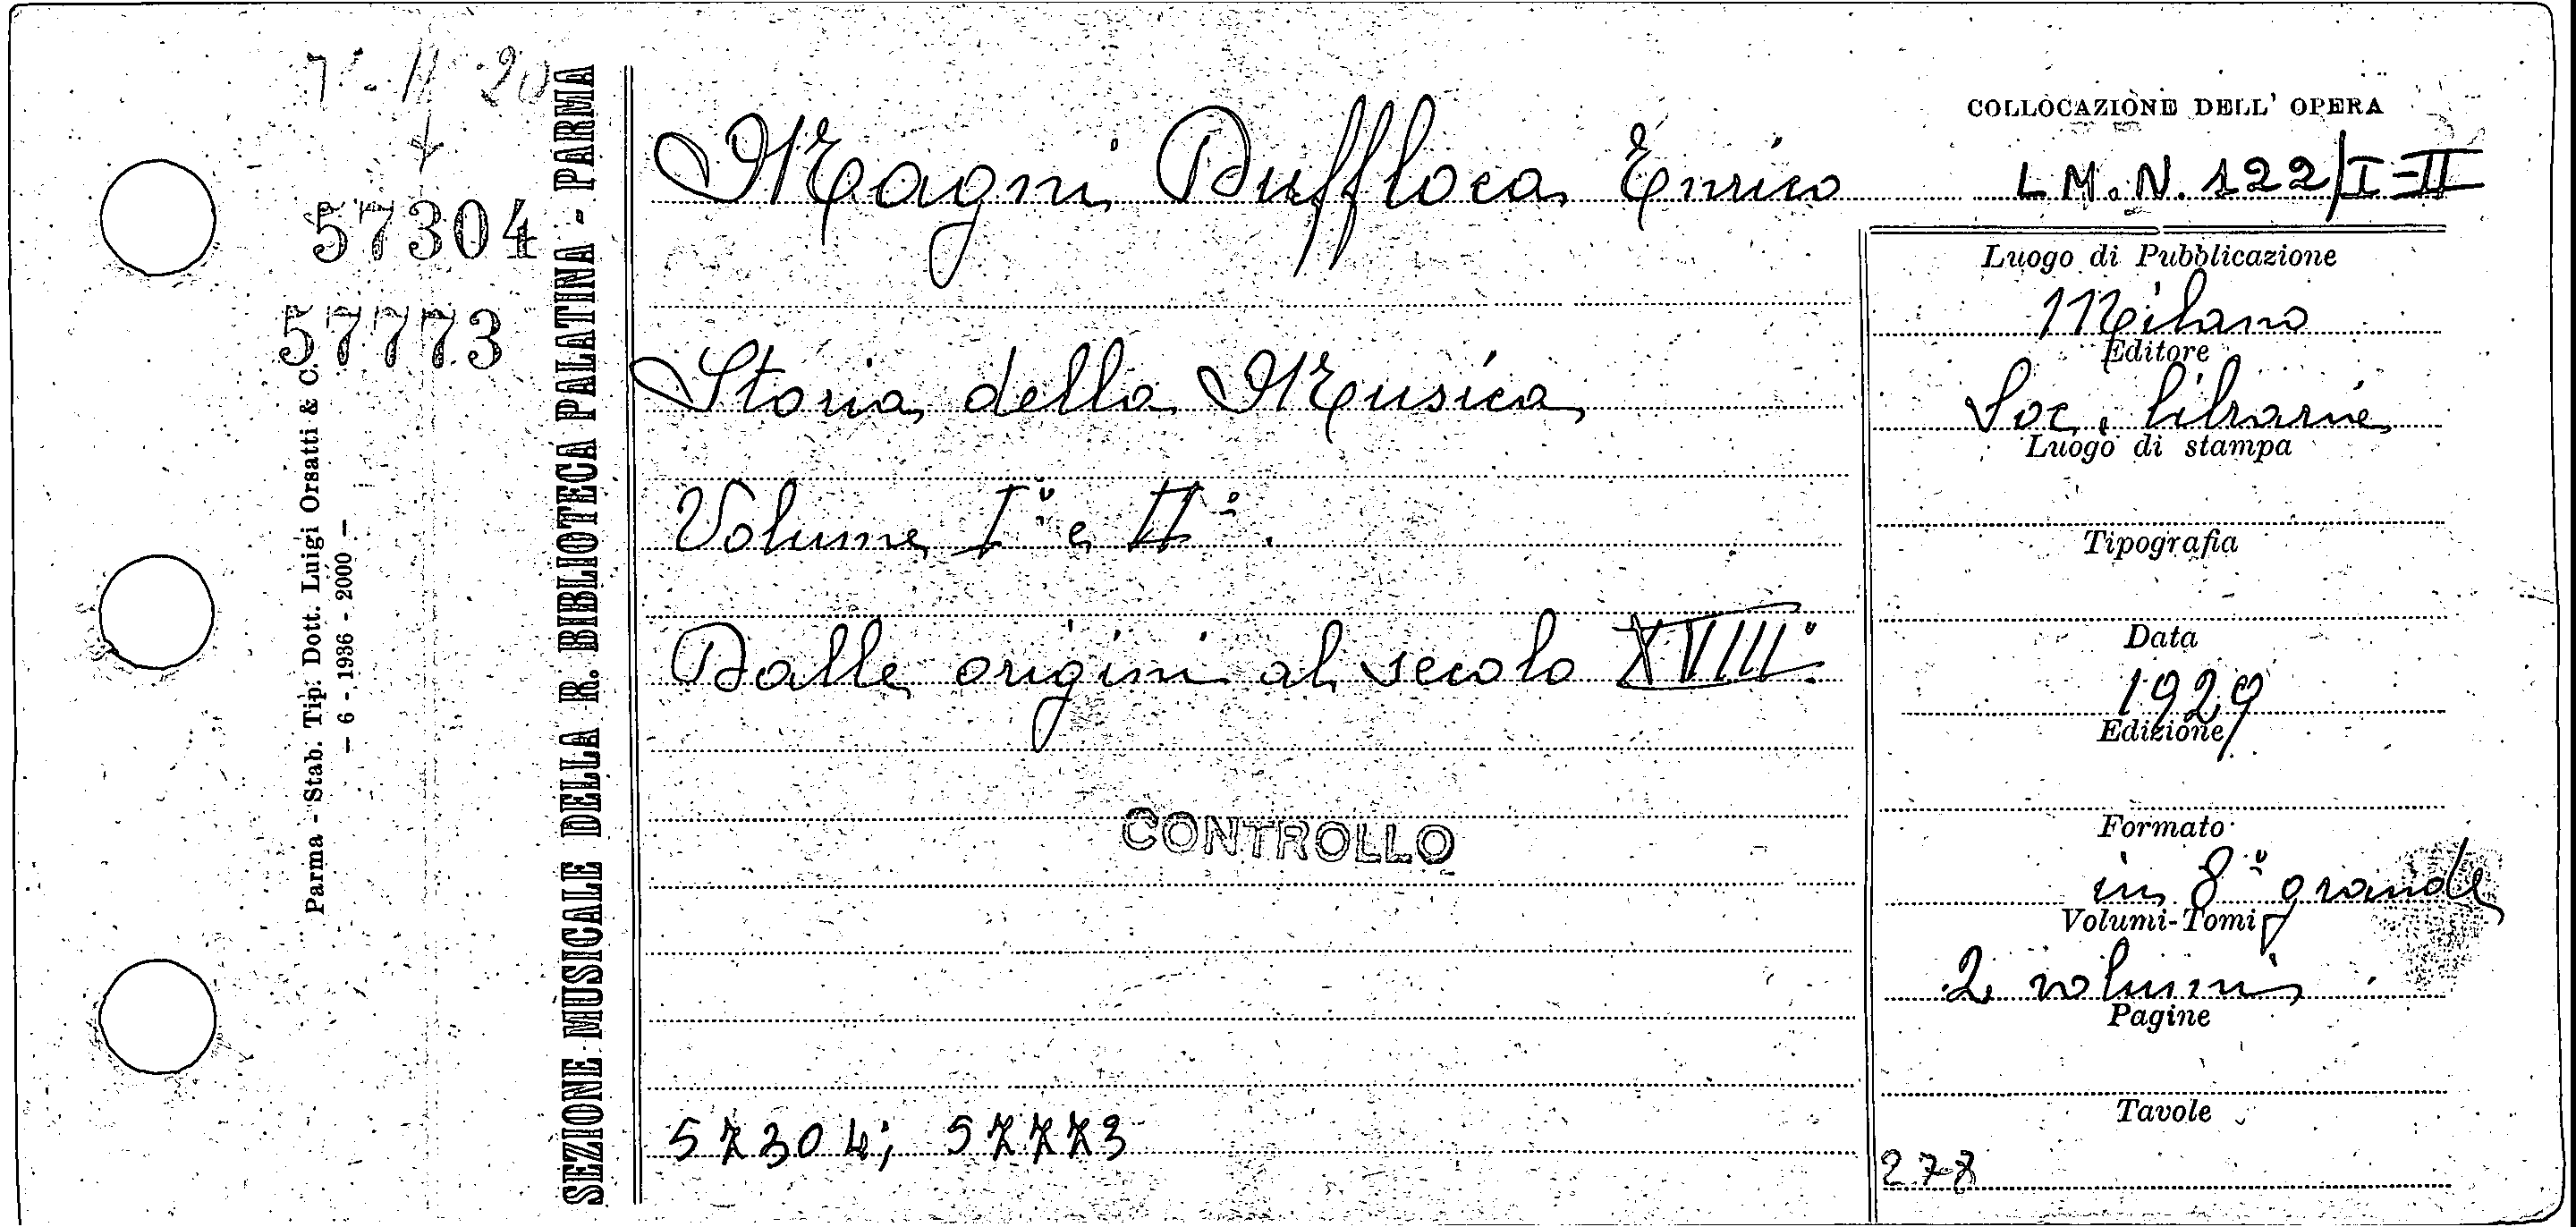 7-11-20
57304
57773
Parma - Stab. Tip. Dott. Luigi Orsatti & C.
- 6 - 1936 - 2000 -
SEZIONE MUSICALE DELLA R. BIBLIOTECA PALATINA - PARMA
Magni Duffloca Enrico
Storia della Musica
Volume I° e II°.
Dalle origini al secolo XVIII°.
CONTROLLO
57304; 57773
COLLOCAZIONE DELL' OPERA
L M. N. 122/I-II
Luogo di Pubblicazione
Milano
Editore
Soc. librarie
Luogo di stampa
Tipografia
Data
1929
Edizione
Formato
in 8° grande
Volumi-Tomi
2 volumi
Pagine
Tavole